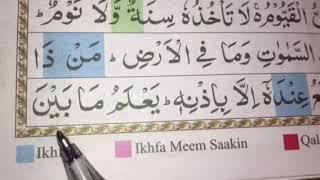 الْقَيُّوْمُ ۚ لَا تَاْخُذُهٗ سِنَةٌ وَّلَا نَوْمٌ ؕ
السَّمٰوٰتِ وَمَا فِى الْاَرْضِ ؕ مَنْ ذَا
عِنْدَهٗۤ اِلَّا بِاِذْنِهٖ ؕ يَعْلَمُ مَا بَيْنَ
Ikhfa Meem Saakin